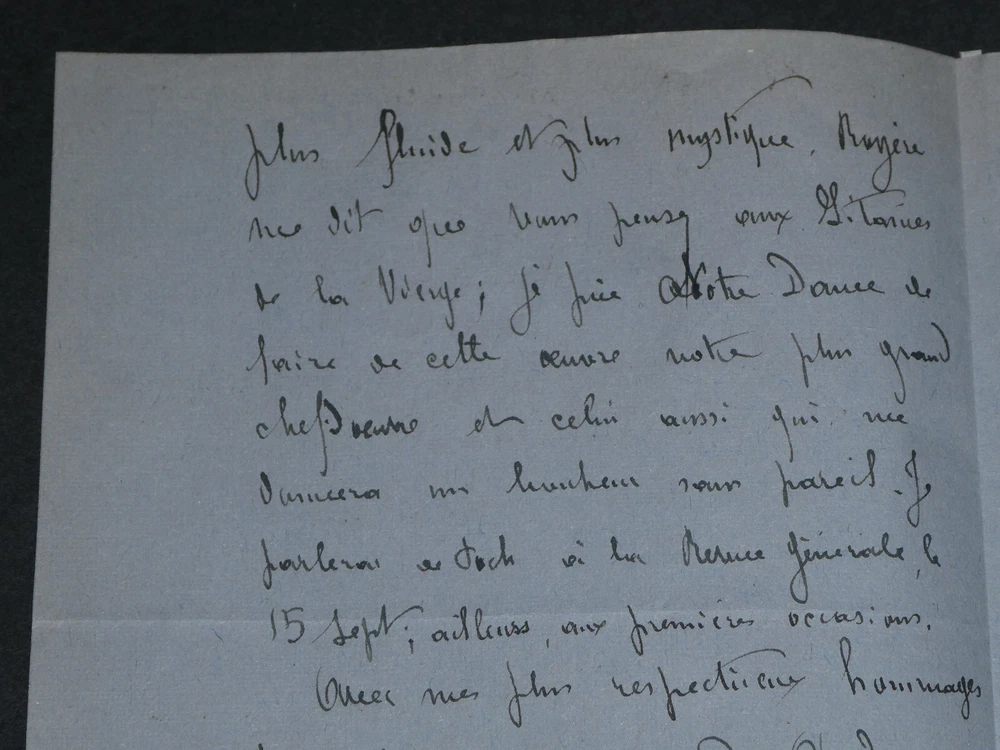 plus fluide et plus mystique. Royère
me dit que vous pensez aux Litanies
de la Vierge; je prie Notre Dame de
faire de cette œuvre notre plus grand
chef d'œuvre et celui aussi qui me
donnera un bonheur sans pareil. Je
parlerai de à la Revue Générale, le
15 Sept; ailleurs, aux premières occasions.
Avec mes plus respectueux hommages